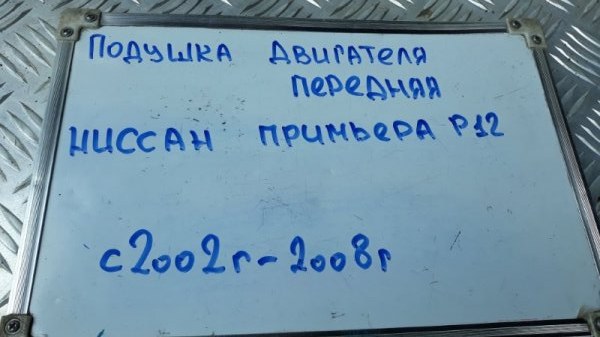 ПОДУШКА ДВИГАТЕЛЯ
ПЕРЕДНЯЯ
НИССАН ПРИМЬЕРА Р12
с 2002г - 2008г